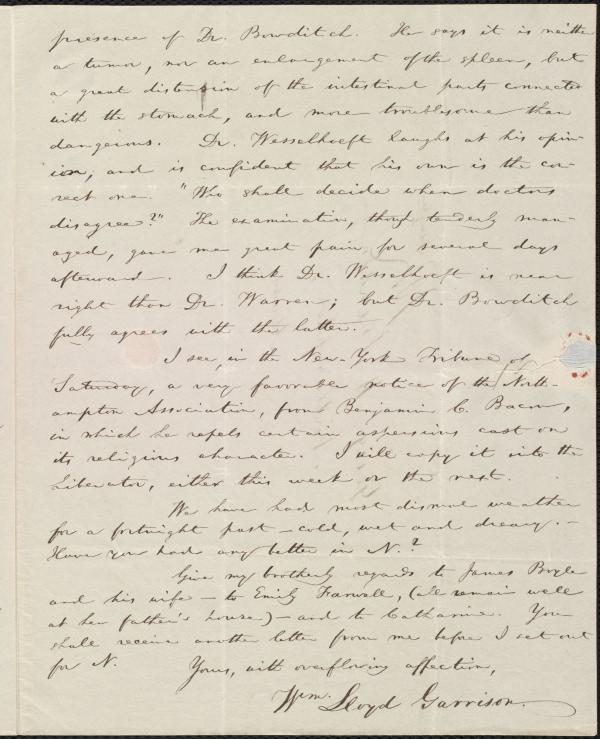 presence of Dr. Bowditch. He says it is neither
a tumor, nor an enlargement of the spleen, but
a great distension of the intestinal parts connected
with the stomach, and more troublesome than
dangerous. Dr. Wesselhoeft laughs at his opin-
ion, and is confident that his own is the cor-
rect one. "Who shall decide when doctors
disagree?" The examination, though tenderly man-
aged, gave me great pain for several days
afterward. I think Dr. Wesselhoeft is near
right than Dr. Warren; but Dr. Bowditch
fully agrees with the latter.
I see, in the New-York Tribune of
Saturday, a very favorable notice of the North-
ampton Association, from Benjamin C. Bacon,
in which he repels certain aspersions cast on
its religious character. I will copy it into the
Liberator, either this week or the next.
We have had most dismal weather
for a fortnight past – cold, wet and dreary. –
Have you had any better in N.?
Give my brotherly regards to James Boyle
and his wife – to Emily Farwell, (all remain well
at her father's house) – and to Catharine. You
shall receive another letter from me before I set out
for N. Yours, with overflowing affection,
Wm. Lloyd Garrison.